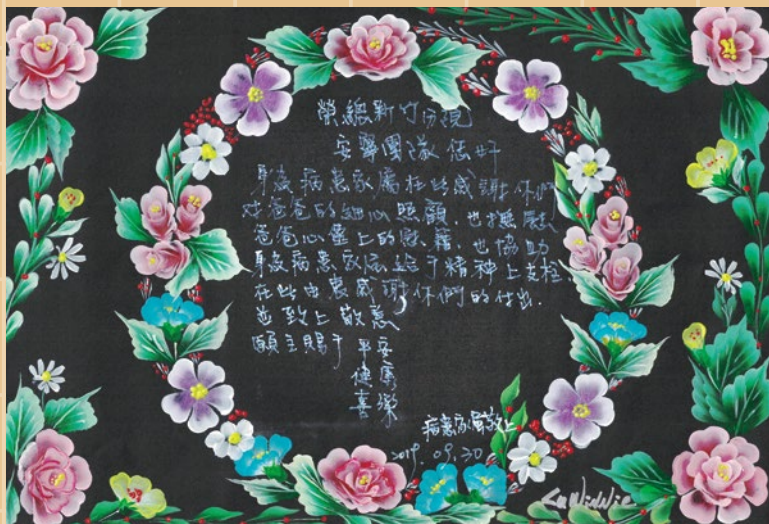 榮總新竹分院
安寧團隊 您好
身為病患家屬在此感謝你們
對爸爸的細心照顧．也撫慰
爸爸心靈上的慰藉．也協助
身為病患家屬給予精神上支柱．
在此由衷感謝你們的付出．
也致上敬意
願主賜予 平安
健康
喜樂
病患家屬敬上
2019 09.30